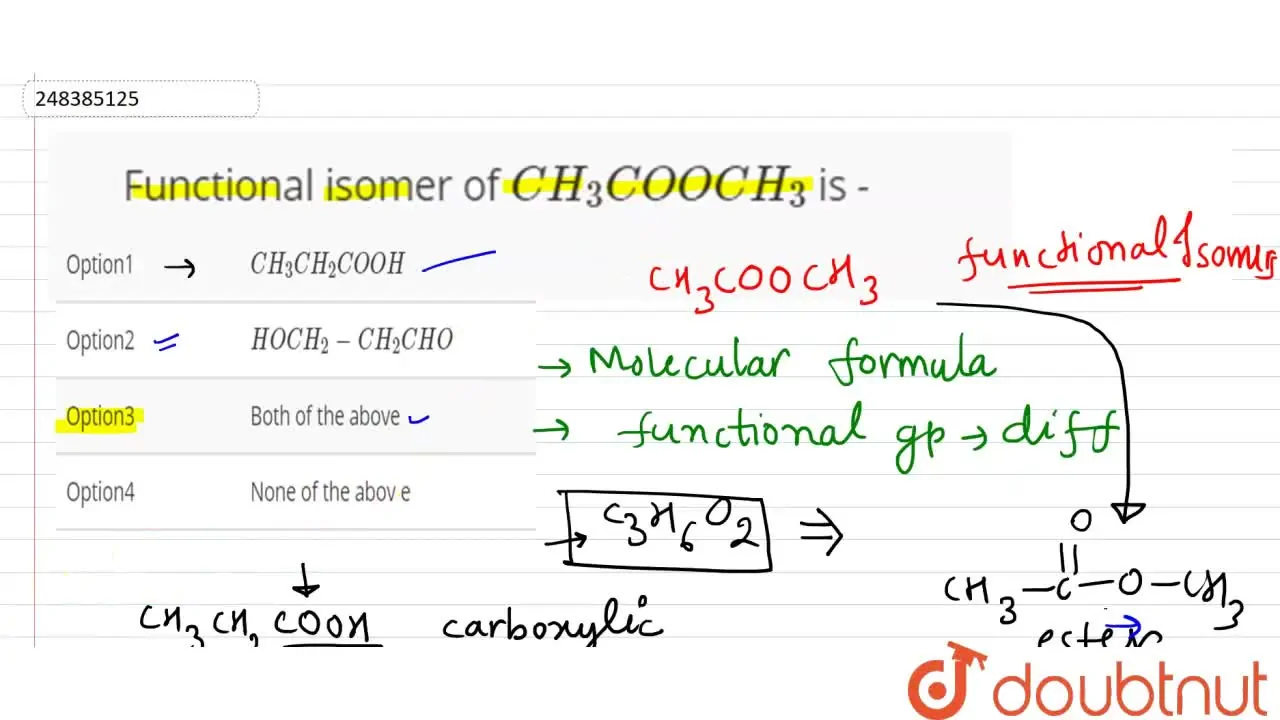 248385125
Functional isomer of CH₃COOCH₃ is -
Option1 → CH₃CH₂COOH
Option2 HOCH₂ – CH₂CHO
Option3 Both of the above
Option4 None of the above
functional Isomers
CH₃COOCH₃
→ Molecular formula
→ functional gp → diff
→ C₃H₆O₂ ⇒
O
CH₃ – C – O – CH₃
CH₃ CH₂ COOH carboxylic
doubtnut